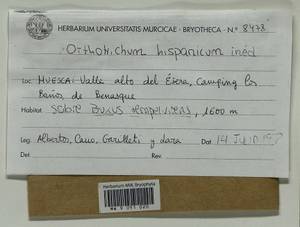 HERBARIUM UNIVERSITATIS MURCICAE - BRYOTHECA - N.º 8478
Orthotrichum hispanicum ined
Loc. HUESCA: Valle alto del Ésera, Camping los
Baños de Benasque
Habitat sobre Buxus sempervirens, 1600 m
Leg. Albertos, Cano, Garilleti y Lara Dat. 14 Junio
Det. Rev.
Herbarium MHA Bryophyta